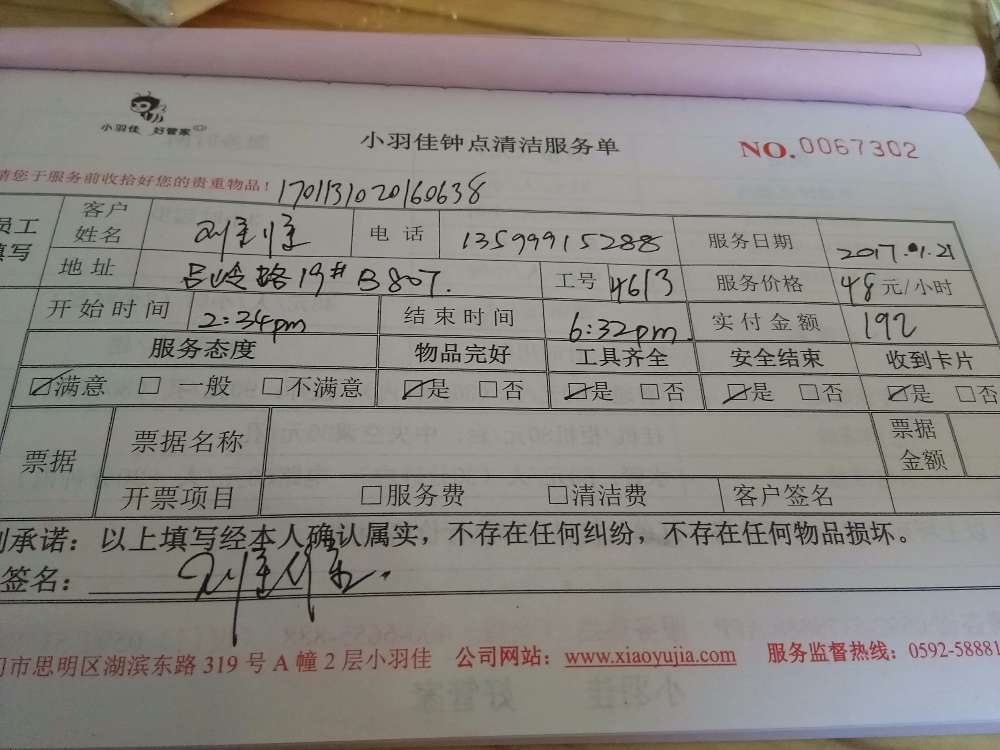 小羽佳 好管家
小羽佳钟点清洁服务单
NO.0067302
请您于服务前收拾好您的贵重物品！ 1701131020160638
员工填写 客户姓名 电话 13599915288 服务日期 2017.01.21
地址 吕岭路19#B807. 工号 4613 服务价格 48元/小时
开始时间 2:34pm 结束时间 6:32pm 实付金额 192
服务态度 物品完好 工具齐全 安全结束 收到卡片
☑满意 □一般 □不满意 ☑是 □否 ☑是 □否 ☑是 □否 ☑是 □否
票据 票据名称 票据金额
开票项目 □服务费 □清洁费 客户签名
承诺：以上填写经本人确认属实，不存在任何纠纷，不存在任何物品损坏。
签名：
门市思明区湖滨东路 319 号 A 幢 2 层小羽佳 公司网站：www.xiaoyujia.com 服务监督热线：0592-58881